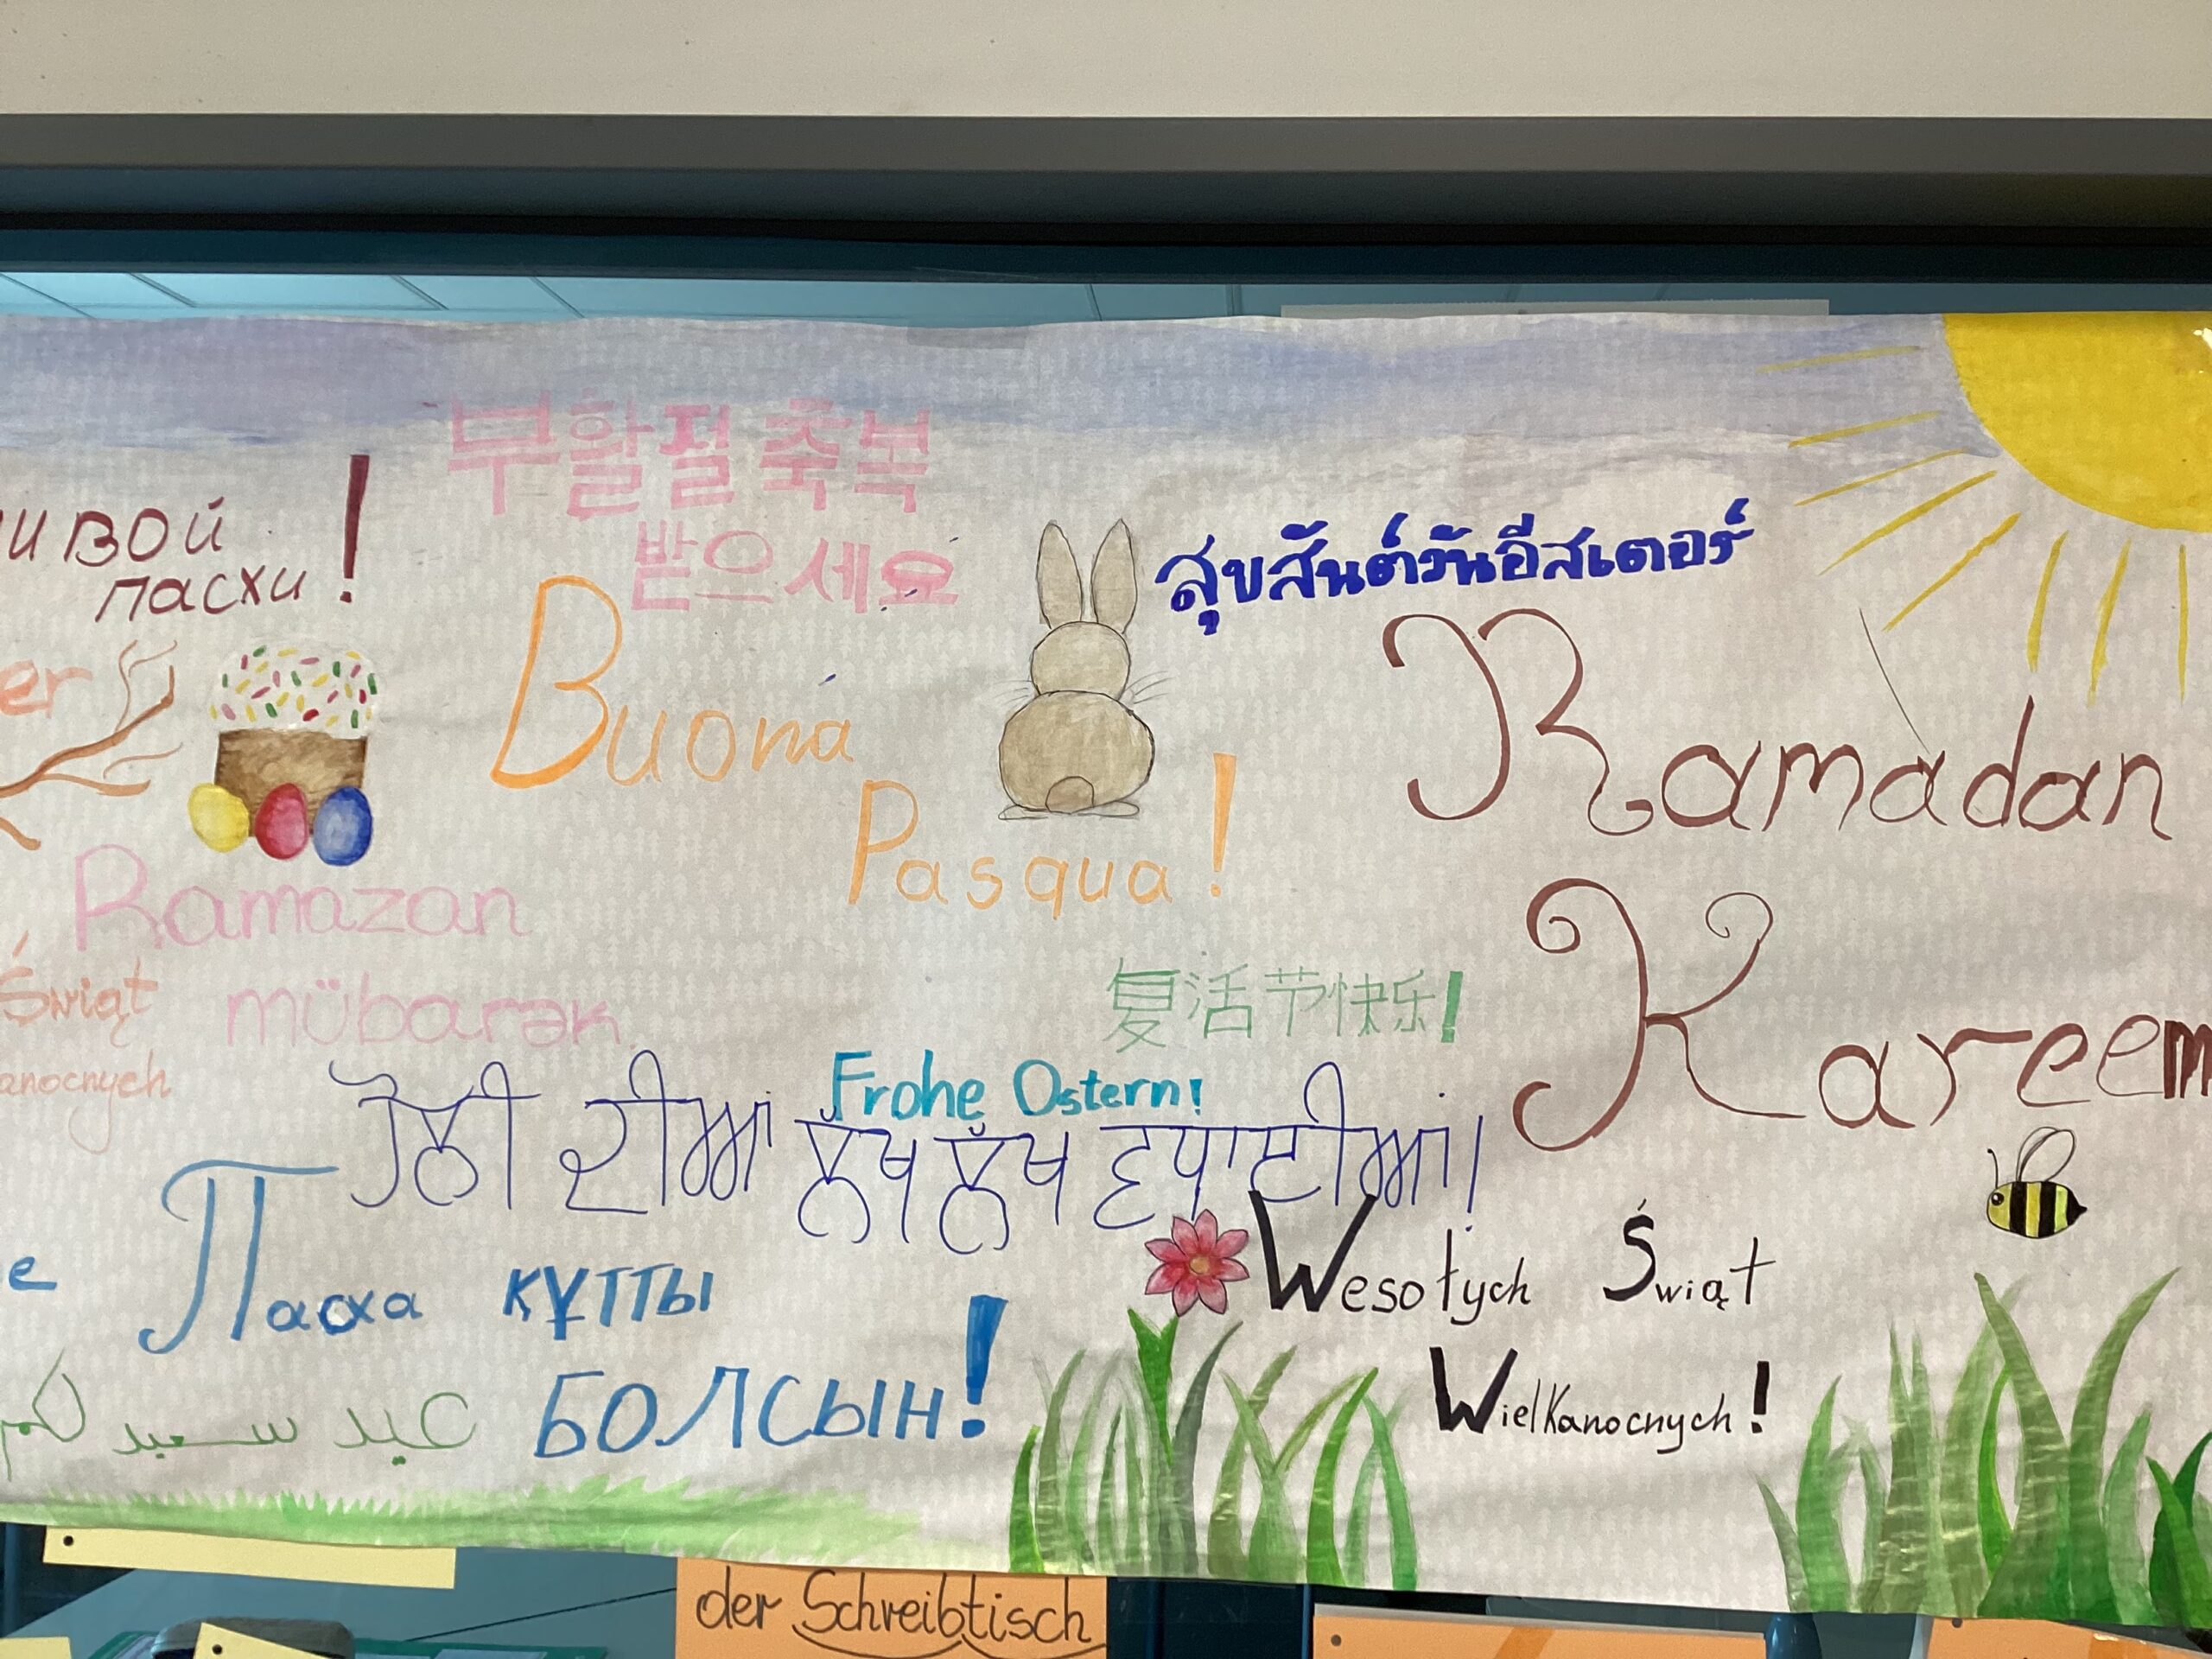 부활절 축복
받으세요
ивой
пасхи!
สุขสันต์วันอีสเตอร์
er
Buona
Pasqua!
Ramadan
Kareem
Ramazan
mübarək
Świąt
anocnych
复活节快乐!
Frohe Ostern!
ਹੋਲੀ ਦੀਆਂ ਲੱਖ ਲੱਖ ਵਧਾਈਆਂ।
e
Пасха құтты
болсын!
Wesołych Świąt
Wielkanocnych!
عيد سعيد لكم
der Schreibtisch